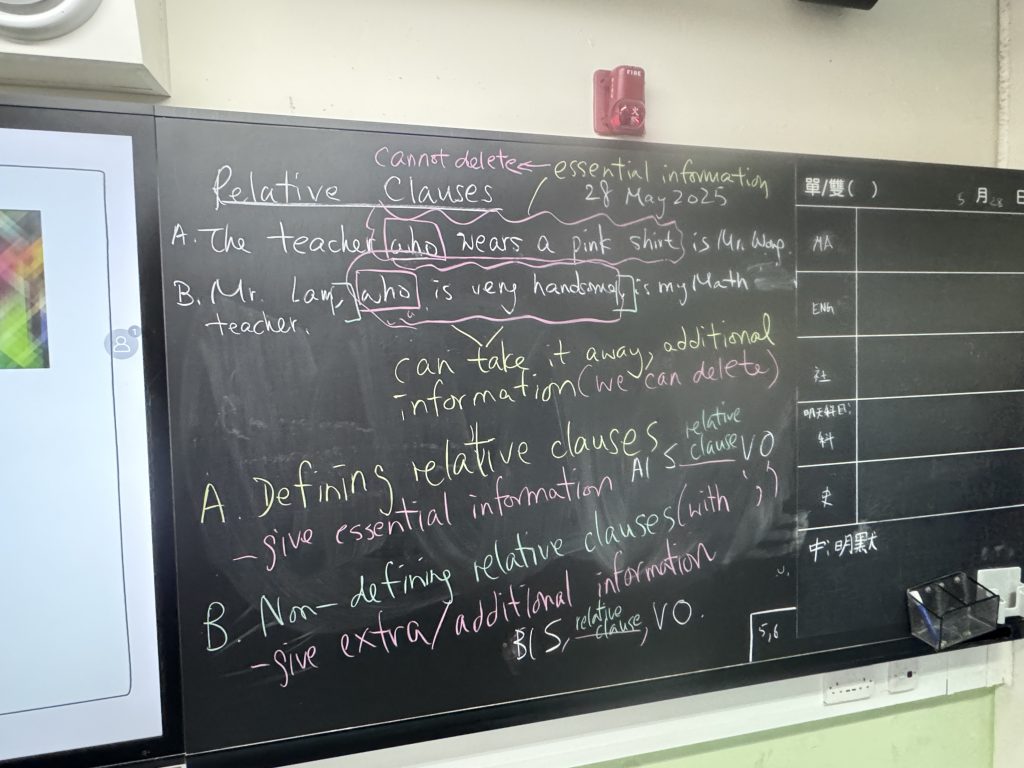 FIRE
火
cannot delete ← essential information
Relative Clauses 28 May 2025
A. The teacher who wears a pink shirt is Mr. Wong.
B. Mr. Lam, who is very handsome, is my Math
teacher.
can take it away, additional
information (we can delete)
A. Defining relative clauses
- give essential information
A( S relative clause VO
B. Non-defining relative clauses (with ‘,’)
- give extra/additional information
B( S, relative clause, VO.
5,6
單/雙( ) 5 月 28 日
MA
ENG
社
明天好日:
科
史
中: 明默